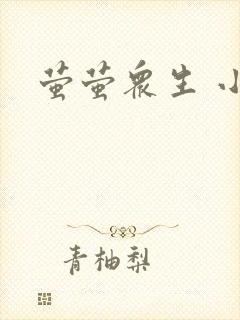 萤萤众生 小
青柚梨